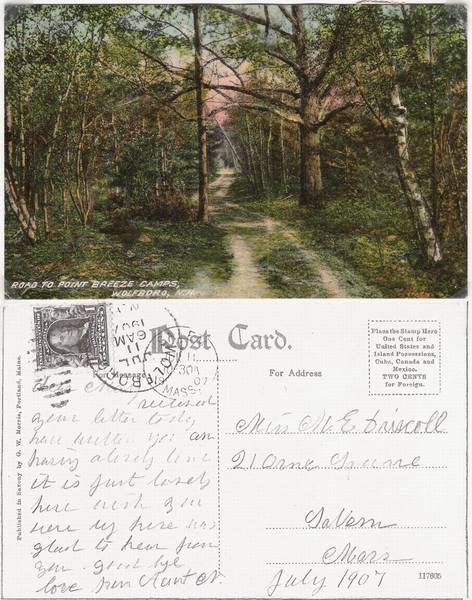 ROAD TO POINT BREEZE CAMPS,
WOLFBORO, N.H.
Post Card.
Place the Stamp Here
One Cent for
United States and
Island Possessions,
Cuba, Canada and
Mexico.
TWO CENTS
for Foreign.
For Address
Published in Saxony by G. W. Morris, Portland, Maine.
JUL
6 AM
MASS.
received
your letter today
have written you am
having a lovely time
it is just lovely
here wish you
were up here was
glad to hear from
you. good bye
love from Aunt N.
Miss M E Driscoll
21 Orne Square
Salem
Mass
July 1907
117605